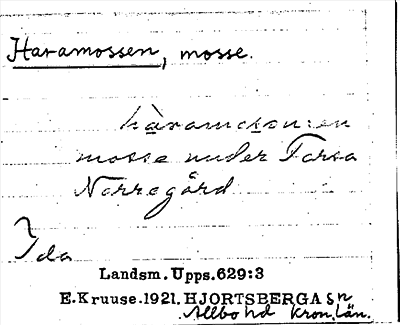 Haramossen, mosse.
hàramosen: en
mosse under Torsa
Norregård
Ida
Landsm. Upps. 629:3
E.Kruuse.1921. HJORTSBERGA sn
Allbo hd Kron. län.